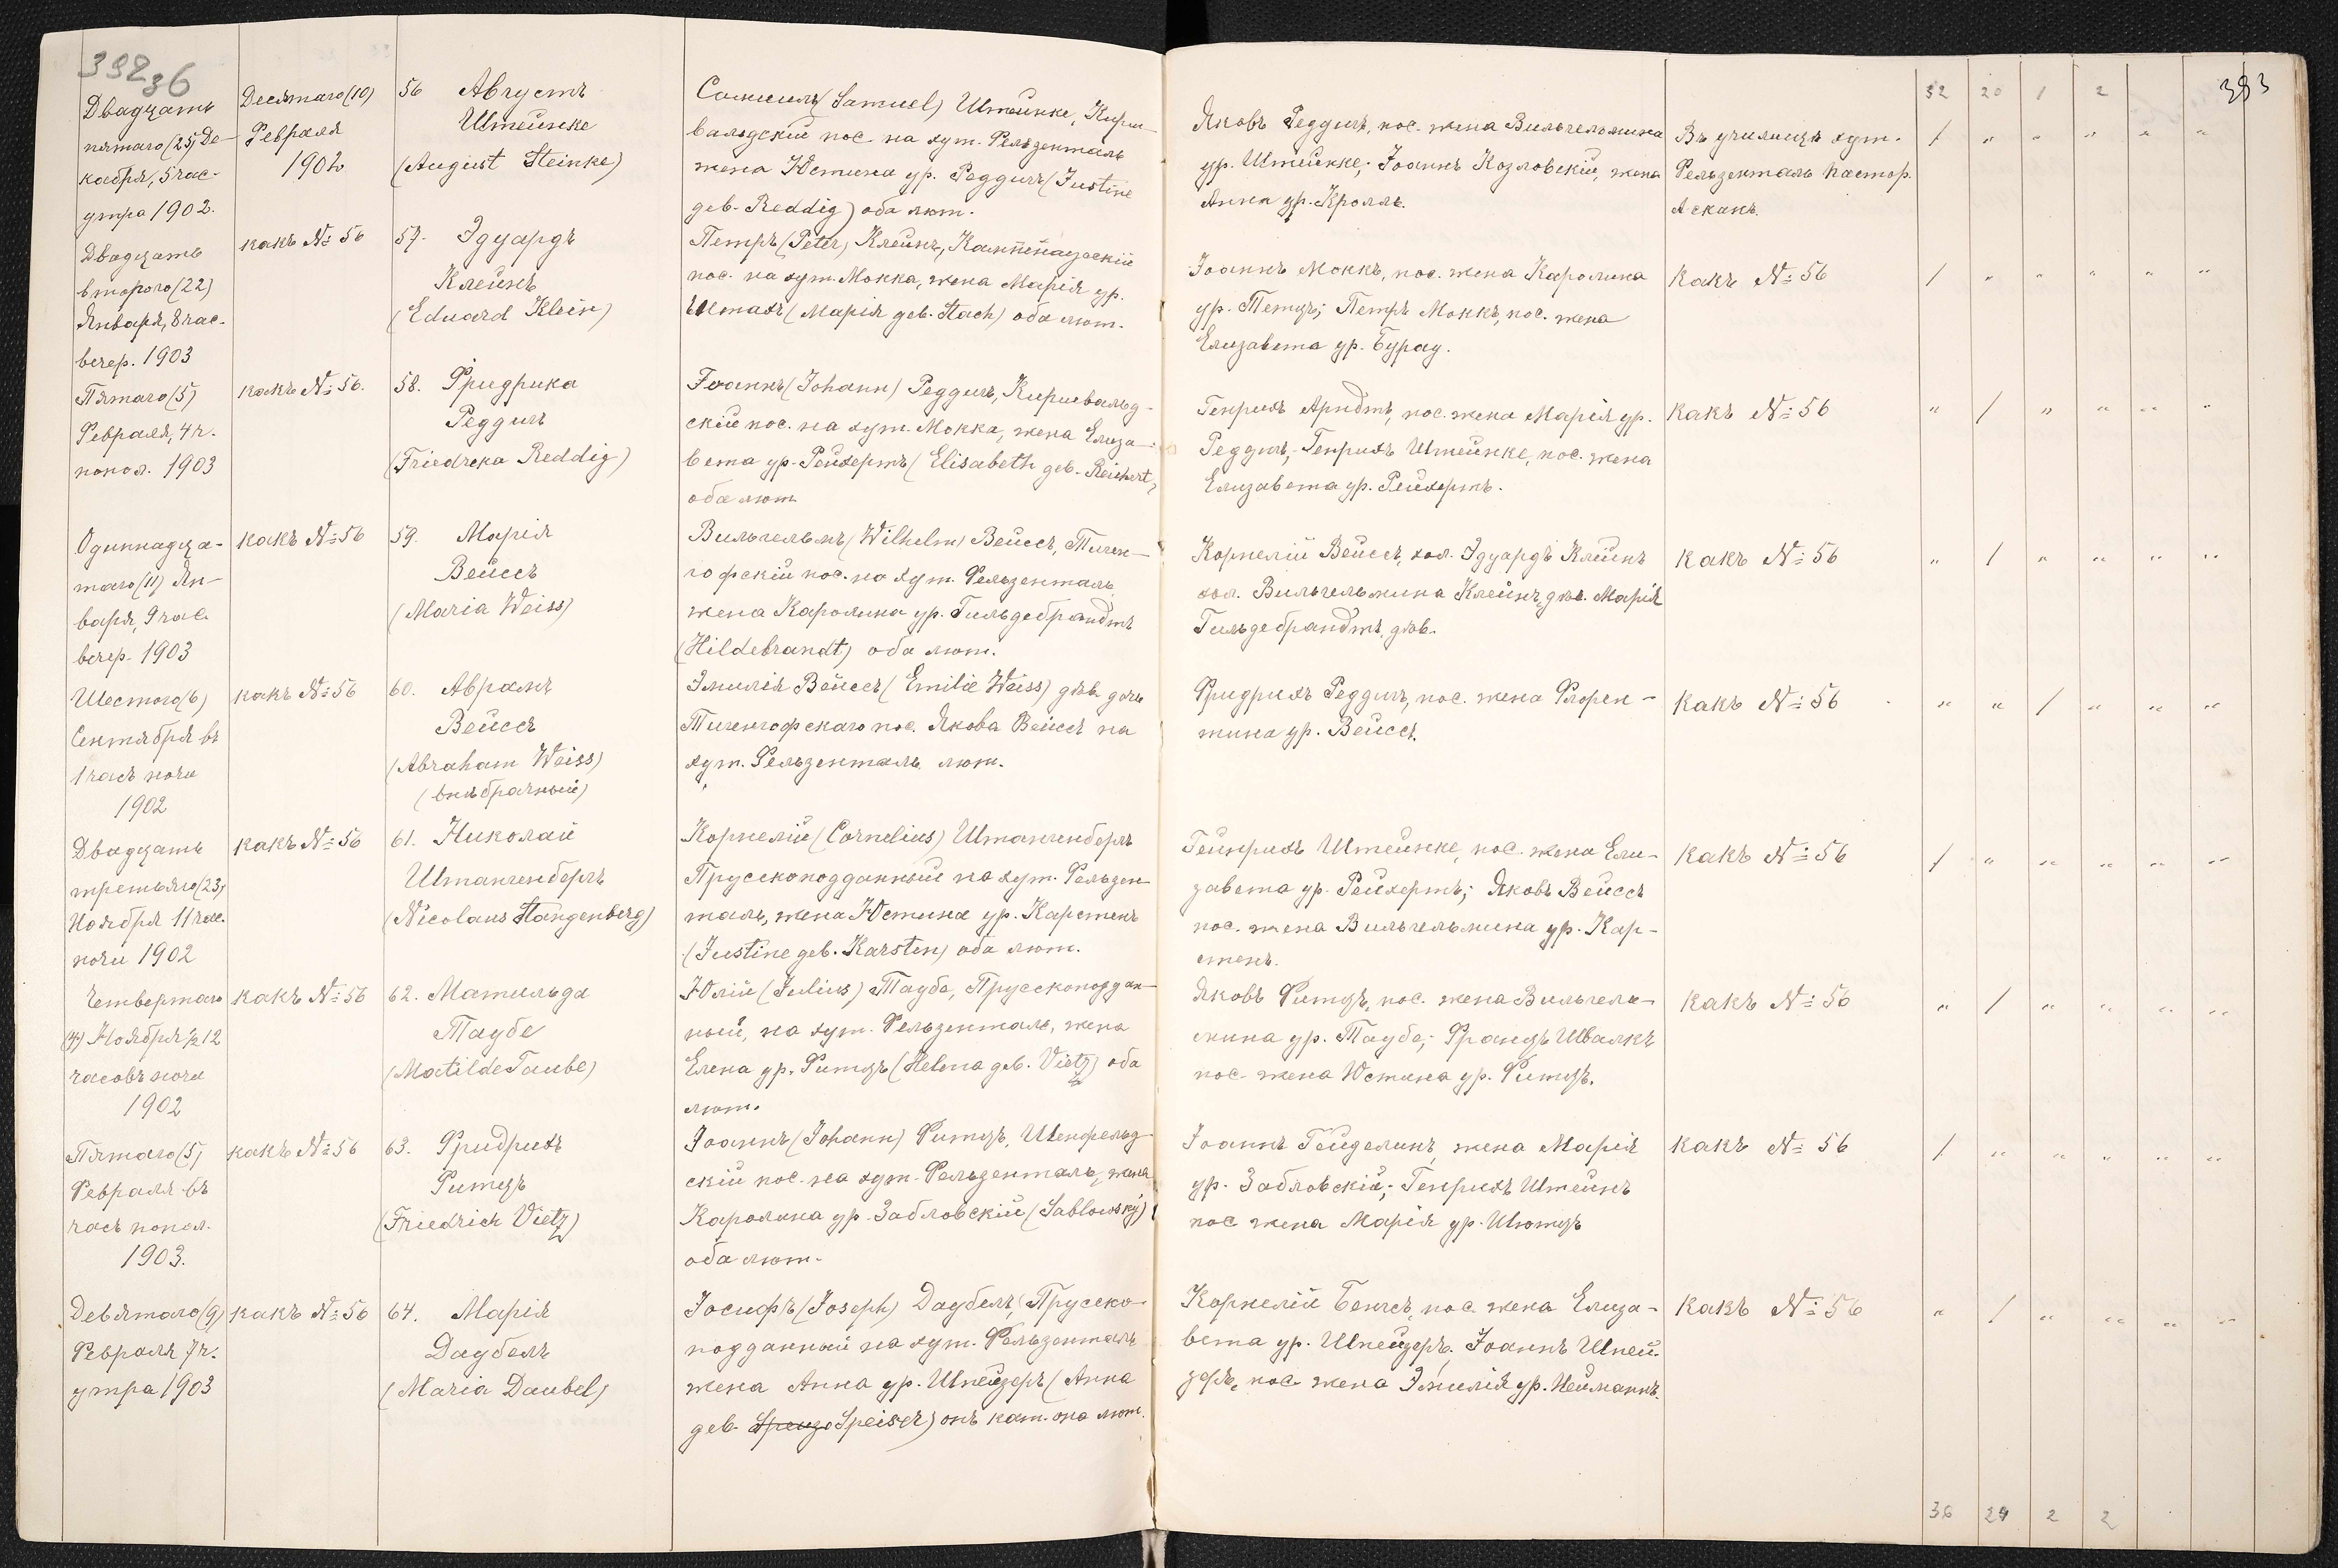 392 36
Двадцать
пятаго (25) Де-
кабря, 5 час.
утра 1902.
Десятаго (10)
Февраля
1902
56 Августъ
Штейнке
(August Steinke)
Самуилъ (Samuel) Штейнке, Кирш-
вальдскій пос. на хут. Фельзенталь
жена Юстина ур. Реддигъ (Justine
geb. Reddig) оба лют.
Двадцать
второго (22)
Января, 8 час.
вечер. 1903
какъ № 56
57. Эдуардъ
Клейнъ
(Eduard Klein)
Петръ (Peter) Клейнъ, Кампенаускій
пос. на хут. Мокка, жена Марія ур.
Штахъ (Марія geb. Stach) оба лют.
Пятаго (5)
Февраля, 4 ч.
попол. 1903
какъ № 56.
58. Фридрика
Реддигъ
(Friedreka Reddig)
Іоаннъ (Johann) Реддигъ, Киршвальд-
скій пос. на хут. Мокка, жена Елиза-
вета ур. Рейхертъ (Elisabeth geb. Reichert,
оба лют.
Одиннадца-
таго (11) Ян-
варя, 9 час.
вечер. 1903
какъ № 56
59. Марія
Вейссъ
(Maria Weiss)
Вильгельмъ (Wilhelm) Вейссъ, Тиген-
гофскій пос. на хут. Фельзенталь
жена Каролина ур. Гильдебрандтъ
(Hildebrandt) оба лют.
Шестого (6)
Сентября въ
1 часъ ночи
1902
какъ № 56
60. Абрамъ
Вейссъ
(Abraham Weiss)
(внѣбрачный)
Эмилія Вейссъ (Emilie Weiss) дѣв. дочь
Тигенгофскаго пос. Якова Вейссъ на
хут. Фельзенталь лют.
Двадцать
третьяго (23)
Ноября 11 час.
ночи 1902
какъ № 56
61. Николай
Штангенбергъ
(Nicolaus Stangenberg)
Корнелій (Cornelius) Штангенбергъ
Прусскоподданный на хут. Фельзен-
таль, жена Юстина ур. Карстенъ
(Justine geb. Karsten) оба лют.
Четвертаго
(4) Ноября ½ 12
часовъ ночи
1902
какъ № 56
62. Матильда
Таубе
(Matilde Taube)
Юлій (Julius) Таубе, Прусскоподдан-
ный, на хут. Фельзенталь, жена
Елена ур. Фитцъ (Helena geb. Vietz) оба
лют.
Пятаго (5)
Февраля въ
часъ попол.
1903.
какъ № 56
63. Фридрихъ
Фитцъ
(Friedrich Vietz)
Іоаннъ (Johann) Фитцъ, Шенфельд-
скій пос. на хут. Фельзенталь, жена
Каролина ур. Забловскій (Sablowsky)
оба лют.
Девятаго (9)
Февраля 7 ч.
утра 1903
какъ № 56
64. Марія
Даубель
(Maria Daubel)
Іосифъ (Joseph) Даубель, Прусско-
подданный на хут. Фельзенталь
жена Анна ур. Шпейзеръ (Anna
geb. Speiser) онъ кат. она лют.
32 20 1 2 393
Яковъ Реддигъ, пос. жена Вильгельмина
ур. Штейнке; Іоаннъ Козловскій, жена
Анна ур. Кролль.
Въ училищѣ хут.
Фельзенталь пастор.
Асканъ.
/ " " " " "
Іоаннъ Моккъ, пос. жена Каролина
ур. Тетцъ; Петръ Моккъ, пос. жена
Елизавета ур. Бурау.
Какъ № 56
/ " " " " "
Генрихъ Арндтъ, пос. жена Марія ур.
Реддигъ; Генрихъ Штейнке, пос. жена
Елизавета ур. Рейхертъ.
Какъ № 56
" / " " " "
Корнелій Вейссъ, хол. Эдуардъ Клейнъ
хол. Вильгельмина Клейнъ, дѣв. Марія
Гильдебрандтъ, дѣв.
Какъ № 56
" / " " " "
Фридрихъ Реддигъ, пос. жена Флорен-
тина ур. Вейссъ.
Какъ № 56
" " / " " "
Гейнрихъ Штейнке, пос. жена Ели-
завета ур. Рейхертъ; Яковъ Вейссъ
пос. жена Вильгельмина ур. Кар-
стенъ.
Какъ № 56
/ " " " " "
Яковъ Фитцъ, пос. жена Вильгель-
мина ур. Таубе; Францъ Швалкъ
пос. жена Юстина ур. Фитцъ.
Какъ № 56
" / " " " "
Іоаннъ Гейделинъ, жена Марія
ур. Забловскій; Генрихъ Штейнъ
пос жена Марія ур. Шютцъ
Какъ № 56
/ " " " " "
Корнелій Бенсъ, пос. жена Елиза-
вета ур. Шпейзеръ. Іоаннъ Шпей-
зеръ, пос. жена Эмилія ур. Нейманнъ.
Какъ № 56
" / " " " "
36 24 2 2